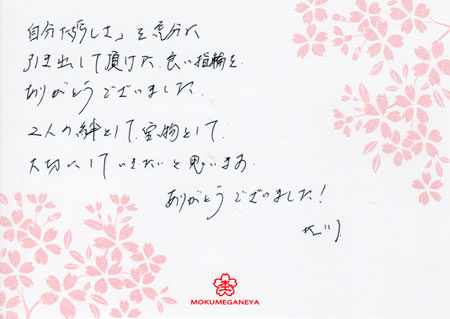 自分達らしさ」を充分に
引き出して頂けた、良い指輪を
ありがとうございました。
2人の絆として、宝物として、
大切にしていきたいと思います。
ありがとうございました!
MOKUMEGANEYA